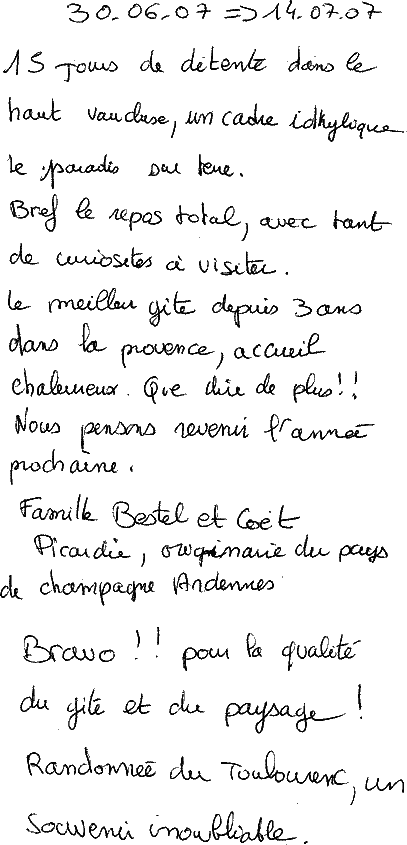 30.06.07 => 14.07.07
15 jours de détente dans le
haut vaucluse, un cadre idhylique
le paradis sur terre.
Bref le repos total, avec tant
de curiosités à visiter.
Le meilleur gite depuis 3 ans
dans la provence, accueil
chaleureux. Que dire de plus!!
Nous pensons revenir l'année
prochaine.
Famille Bestel et Coët
Picardie, originaire du pays
de champagne Ardennes
Bravo !! pour la qualité
du gite et du paysage !
Randonnée du Toulourenc, un
Souvenir inoubliable.